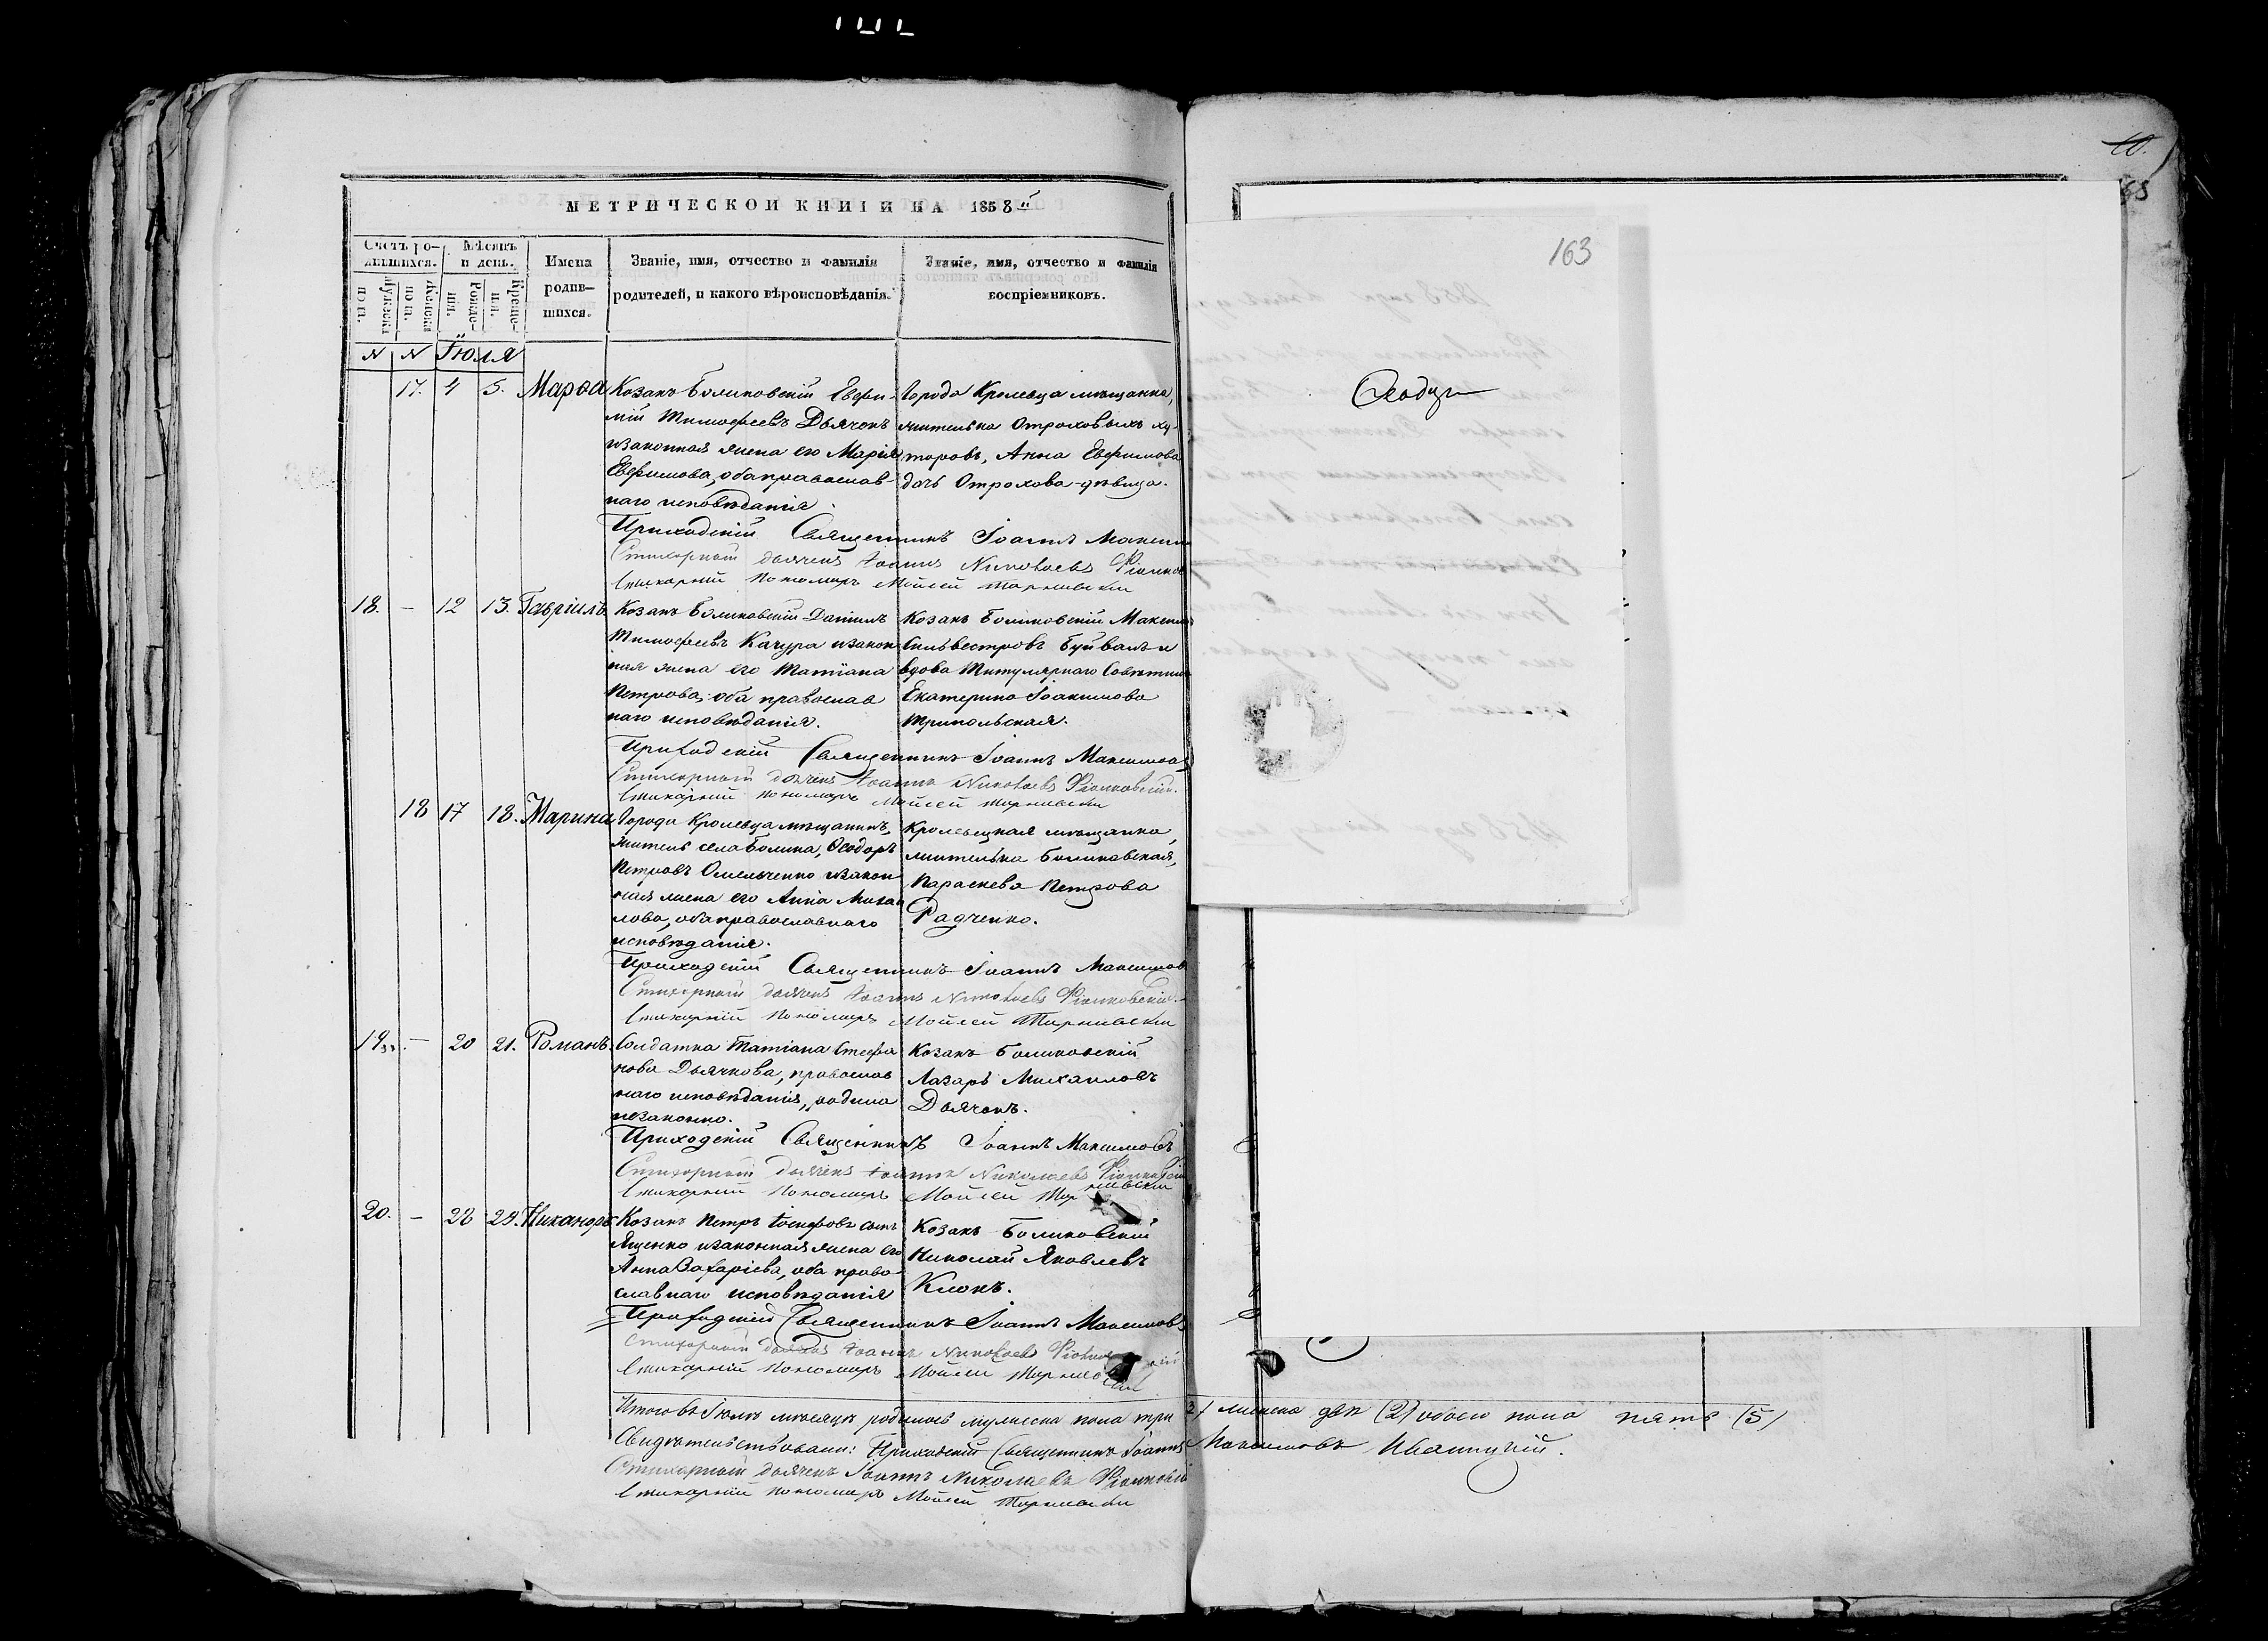 МЕТРИЧЕСКОЙ КНИГИ НА 1858й
Счетъ ро-
дившихся.
Мѣсяцъ
и день.
Имена
родив-
шихся.
Званіе, имя, отчество и фамилія
родителей, и какого вѣроисповѣданія.
Званіе, имя, отчество и фамилія
воспріемниковъ.
Мужеска
пола.
Женска
пола.
Рожде-
нія.
Креще-
нія.
N N Іюля
17. 4 5. Марѳа
Козакъ Боликовскій Евфи-
мій Тимофеевъ Дьячокъ
изаконная жена его Марія
Евфимова, оба православ-
наго исповѣданія.
Города Кролевца мѣщанка,
жителька Отроховыхъ ху-
торовъ, Анна Евфимова
дочь Отрохова-дѣвица.
Приходскій Священникъ Іоаннъ Максимо
Стихарный дьячекъ Іоаннъ Николаевъ Ріонков
Стихарній Пономарь Мойсей Тарнивски
18. — 12 13. Гавріилъ
Козакъ Боликовскій Даніилъ
Тимофеевъ Качура изакон
ная жена его Татіана
Петрова, оба православ
наго исповѣданія.
Козакъ Боликовскій Максимъ
Сильвестровъ Буйвалъ и
вдова Титулярнаго Совѣтник
Екатерина Іоакимова
Трипольская.
Приходскій Священникъ Іоаннъ Максимов
Стихарный дьячекъ Іоаннъ Николаевъ Ріонковскій.
Стихарній Пономарь Мойсей Тарнивски
18 17 18. Марина
Города Кролевца мѣщанинъ,
житель села Болика, Ѳеодоръ
Петровъ Омельченко изакон
ная жена его Анна Михаи
лова, оба православнаго
исповѣданія.
Кролевецкая мѣщанка,
жителька Боликовская,
Параскева Петрова
Радченко.
Приходскій Священникъ Іоаннъ Максимов
Стихарный дьячекъ Іоаннъ Николаевъ Ріонковскій.
Стихарній Пономарь Мойсей Тарнивски
19. — 20 21. Романъ.
Солдатка Татіана Стефа
нова Дьячкова, православ
наго исповѣданія, родила
незаконно.
Козакъ Боликовскій
Лазарь Михаиловъ
Дьячокъ.
Приходскій Священникъ Іоаннъ Максимовъ
Стихарный дьячекъ Іоаннъ Николаевъ Ріонковскій
Стихарній Пономарь Мойсей Тарнивски
20. — 28 29. Никаноръ
Козакъ Петръ Іосифовъ сынъ
Ященко изаконная жена его
Анна Захаріева, оба право-
славнаго исповѣданія
Козакъ Боликовскій
Николай Яковлевъ
Клокъ.
Приходскій Священникъ Іоаннъ Максимовъ
Стихарный дьячекъ Іоаннъ Николаевъ
Стихарній Пономарь Мойсей Тарнивски
Итого въ Іюлѣ мѣсяцѣ родилось мужеска пола три 3) женска двѣ (2) обоего пола пять (5)
Свидѣтельствовали: Приходскій Священникъ Іоаннъ Максимовъ Иваницкій.
Стихарный дьячекъ Іоаннъ Николаевъ Ріонковскій
Стихарній Пономарь Мойсей Тарнивски
10.
163